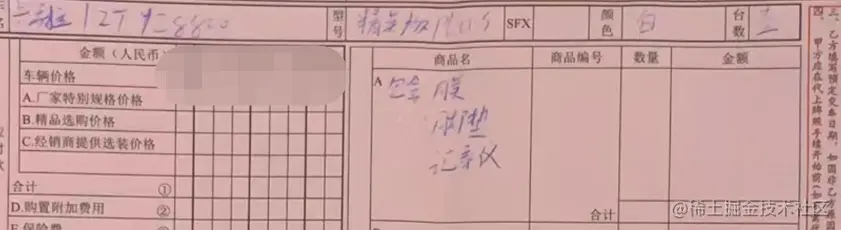 名 卡罗拉 1.2T 型号 精英版 SFX 颜色 白 台数
金额（人民币）
车辆价格
A.厂家特别规格价格
B.精品选购价格
C.经销商提供选装价格
合计 ①
D.购置附加费用 ②
E.保险费
商品名 商品编号 数量 金额
A 全 膜
脚垫
记录仪
合计
三、乙方填写预定交车日期，如因非乙方原因
四、甲方应在代上牌照手续开始前
@稀土掘金技术社区